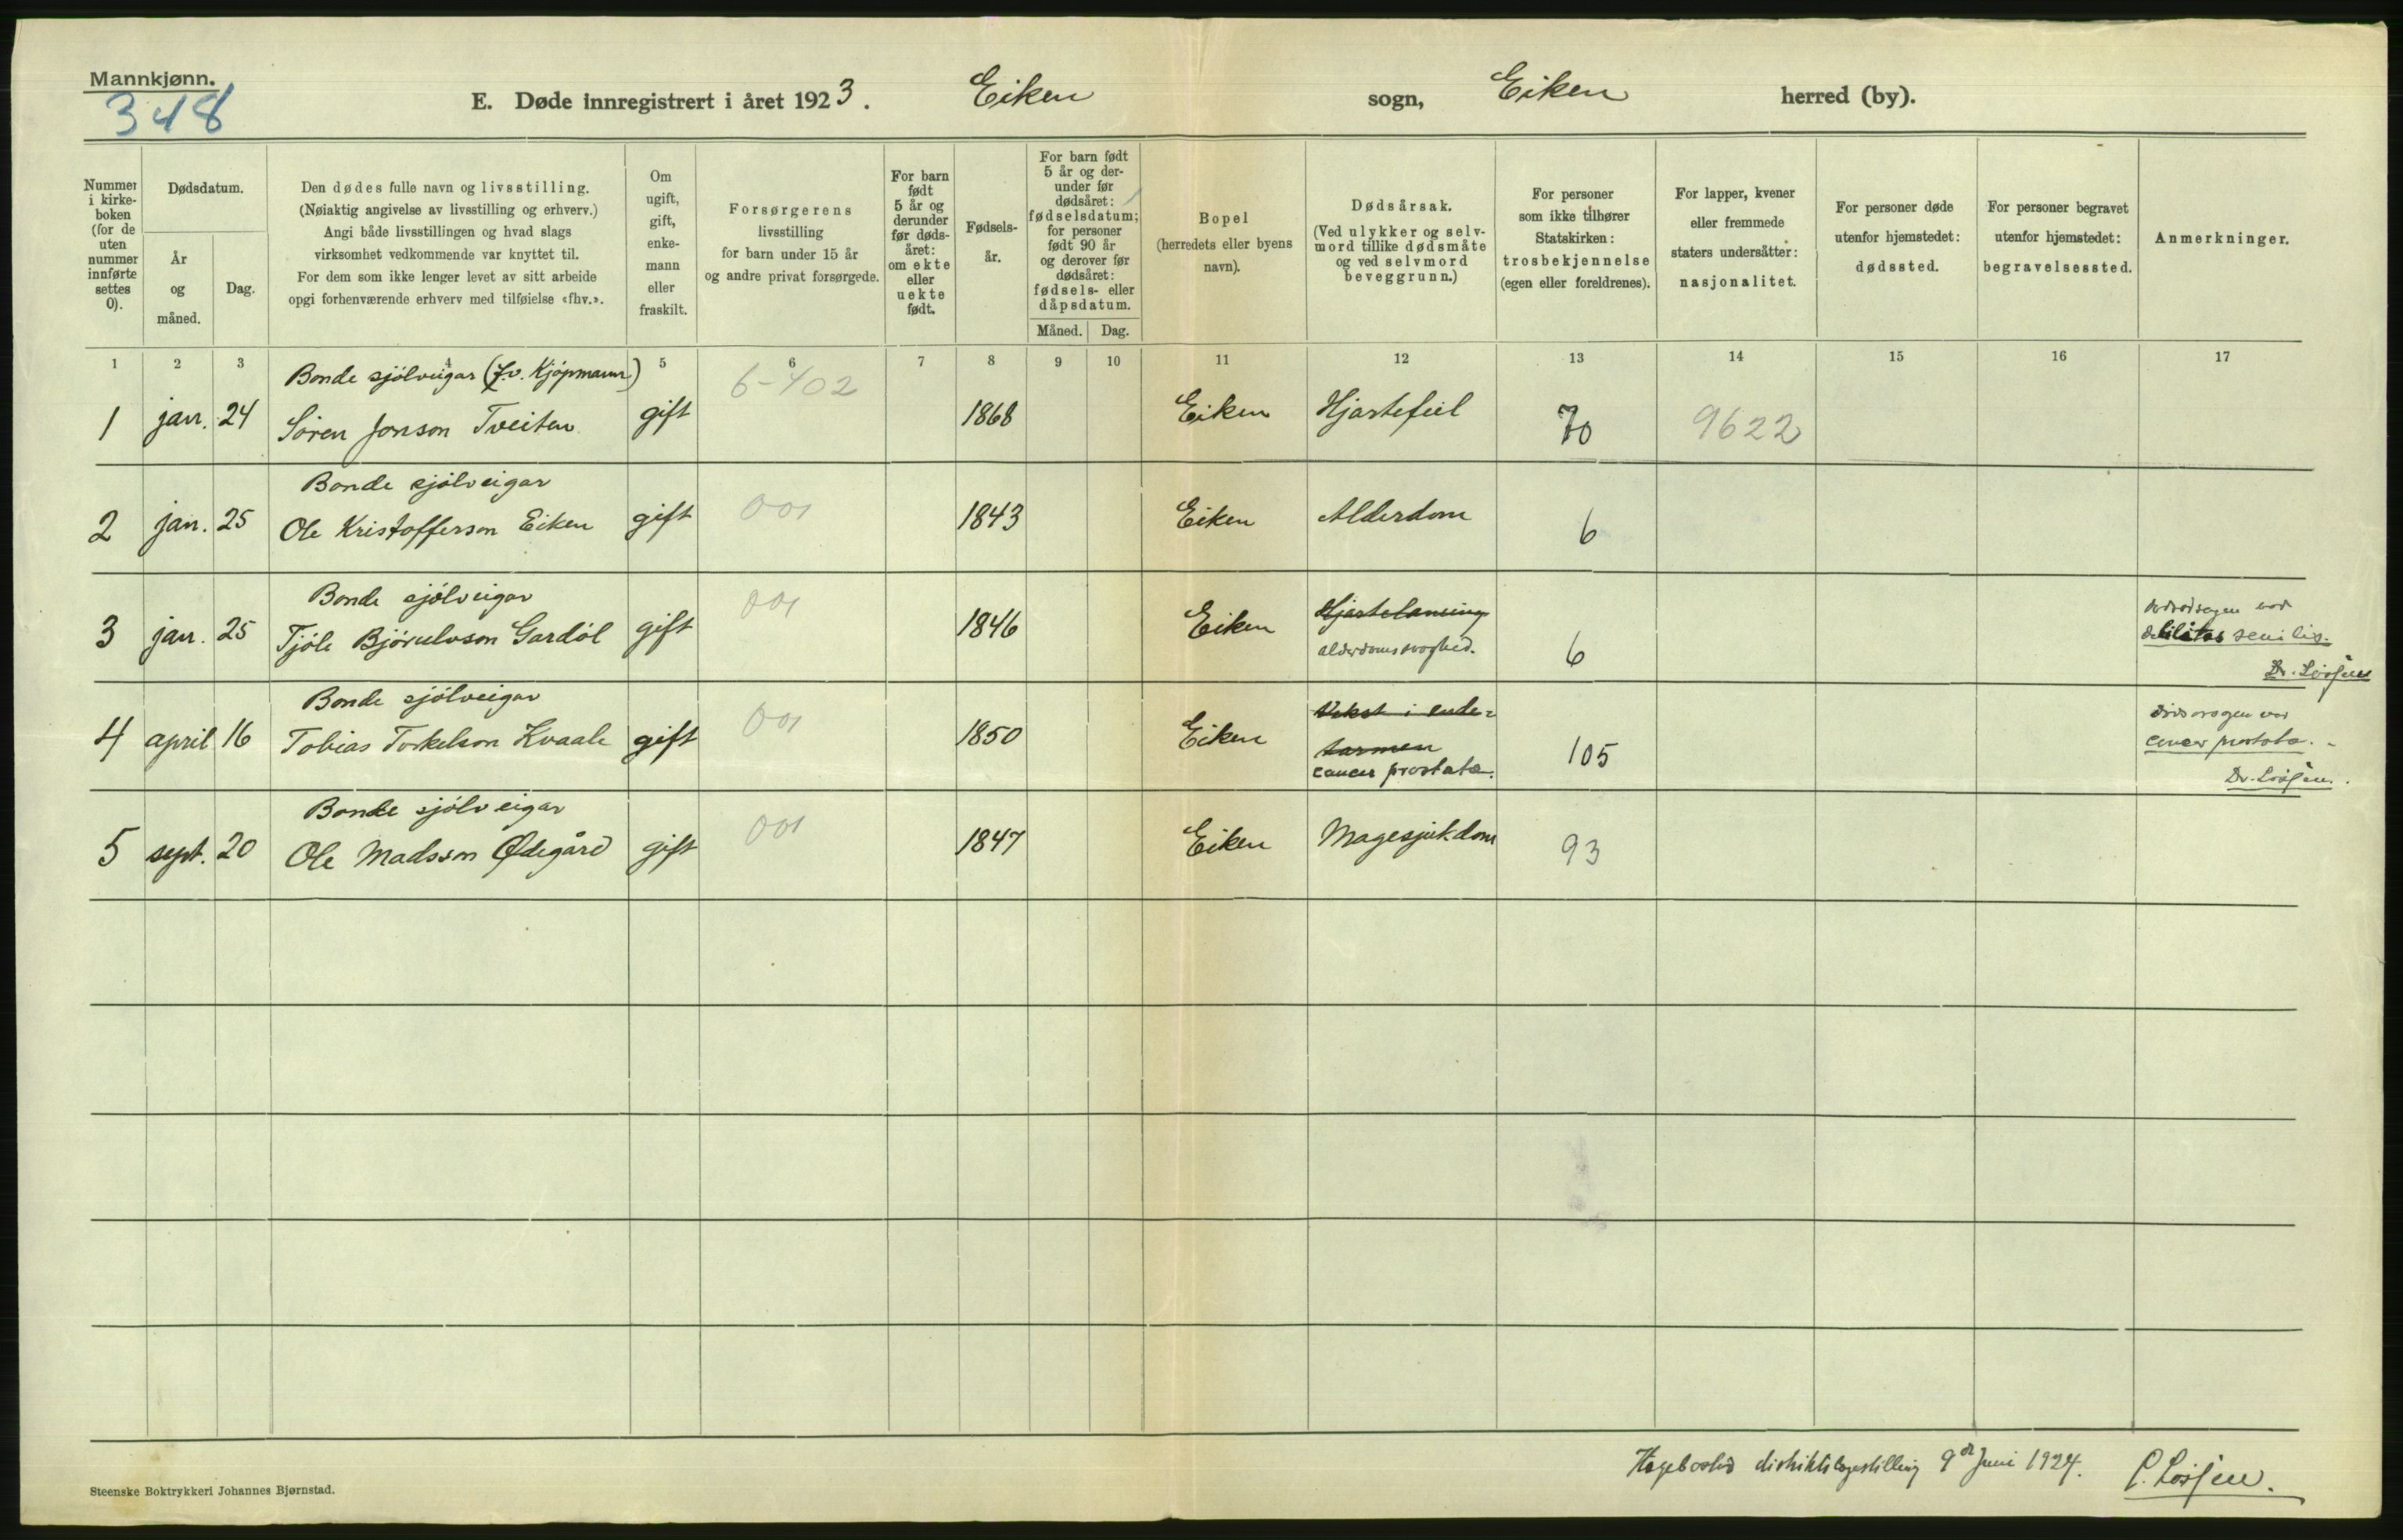 Mannkjønn.
348
E. Døde innregistrert i året 1923. Eiken sogn, Eiken herred (by).
Nummer i kirkeboken (for de uten nummer innførte settes 0).
Dødsdatum.
År og måned.
Dag.
Den dødes fulle navn og livsstilling.
(Nøiaktig angivelse av livsstilling og erhverv.)
Angi både livsstillingen og hvad slags
virksomhet vedkommende var knyttet til.
For dem som ikke lenger levet av sitt arbeide
opgi forhenværende erhverv med tilføielse «fhv.».
Om ugift, gift, enkemann eller fraskilt.
Forsørgerens
livsstilling
for barn under 15 år
og andre privat forsørgede.
For barn født 5 år og derunder før dødsåret: om ekte eller uekte født.
Fødselsår.
For barn født 5 år og derunder før dødsåret: fødselsdatum; for personer født 90 år og derover før dødsåret: fødsels- eller dåpsdatum.
Måned. Dag.
Bopel
(herredets eller byens
navn).
Dødsårsak.
(Ved ulykker og selvmord tillike dødsmåte og ved selvmord beveggrunn.)
For personer
som ikke tilhører
Statskirken:
trosbekjennelse
(egen eller foreldrenes).
For lapper, kvener
eller fremmede
staters undersåtter:
nasjonalitet.
For personer døde
utenfor hjemstedet:
dødssted.
For personer begravet
utenfor hjemstedet:
begravelsessted.
Anmerkninger.
1 2 3 4 5 6 7 8 9 10 11 12 13 14 15 16 17
Bonde sjölveigar (f.v. Kjöpmann)
1 jan. 24 Sören Jonson Tveiten gift 6-402 1868 Eiken Hjartefeil 70 9622
Bonde sjölveigar
2 jan. 25 Ole Kristofferson Eiken gift 001 1843 Eiken Alderdom 6
Bonde sjölveigar
3 jan. 25 Tjöle Bjórulvson Gardöl gift 001 1846 Eiken Hjartelamning
alderdomssvaghed. 6
debilitas senilis.
Bonde sjölveigar
4 april 16 Tobias Torkelson Kvaale gift 001 1850 Eiken Vekst i ende-
tarmen
cancer prostatae. 105
cancer prostatae.
Bonde sjölveigar
5 sept. 20 Ole Madsson Ødegård gift 001 1847 Eiken Magesjukdom 93
Steenske Boktrykkeri Johannes Bjørnstad.
Hægebostad distriktslægestilling 9de Juni 1924.